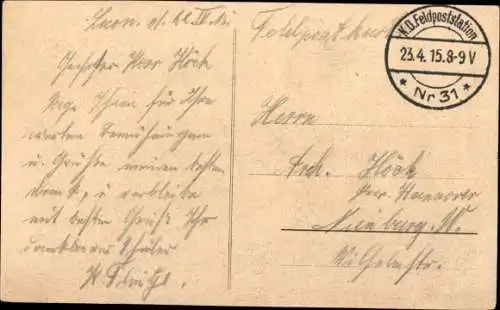 Laon, d. 22. IV. 15.
Geehrter Herr Höck
Sage Ihnen für Ihre
werten Bemühungen
u. Grüße meinen besten
Dank, u. verbleibe
mit besten Gruß Ihr
dankbarer Schüler
Feldpostkarte
K.D.Feldpoststation
23.4.15.8-9V
* Nr 31 *
Herrn
Arch. Höck
Prov. Hannover
Nienburg. W.
Wilhelmstr.